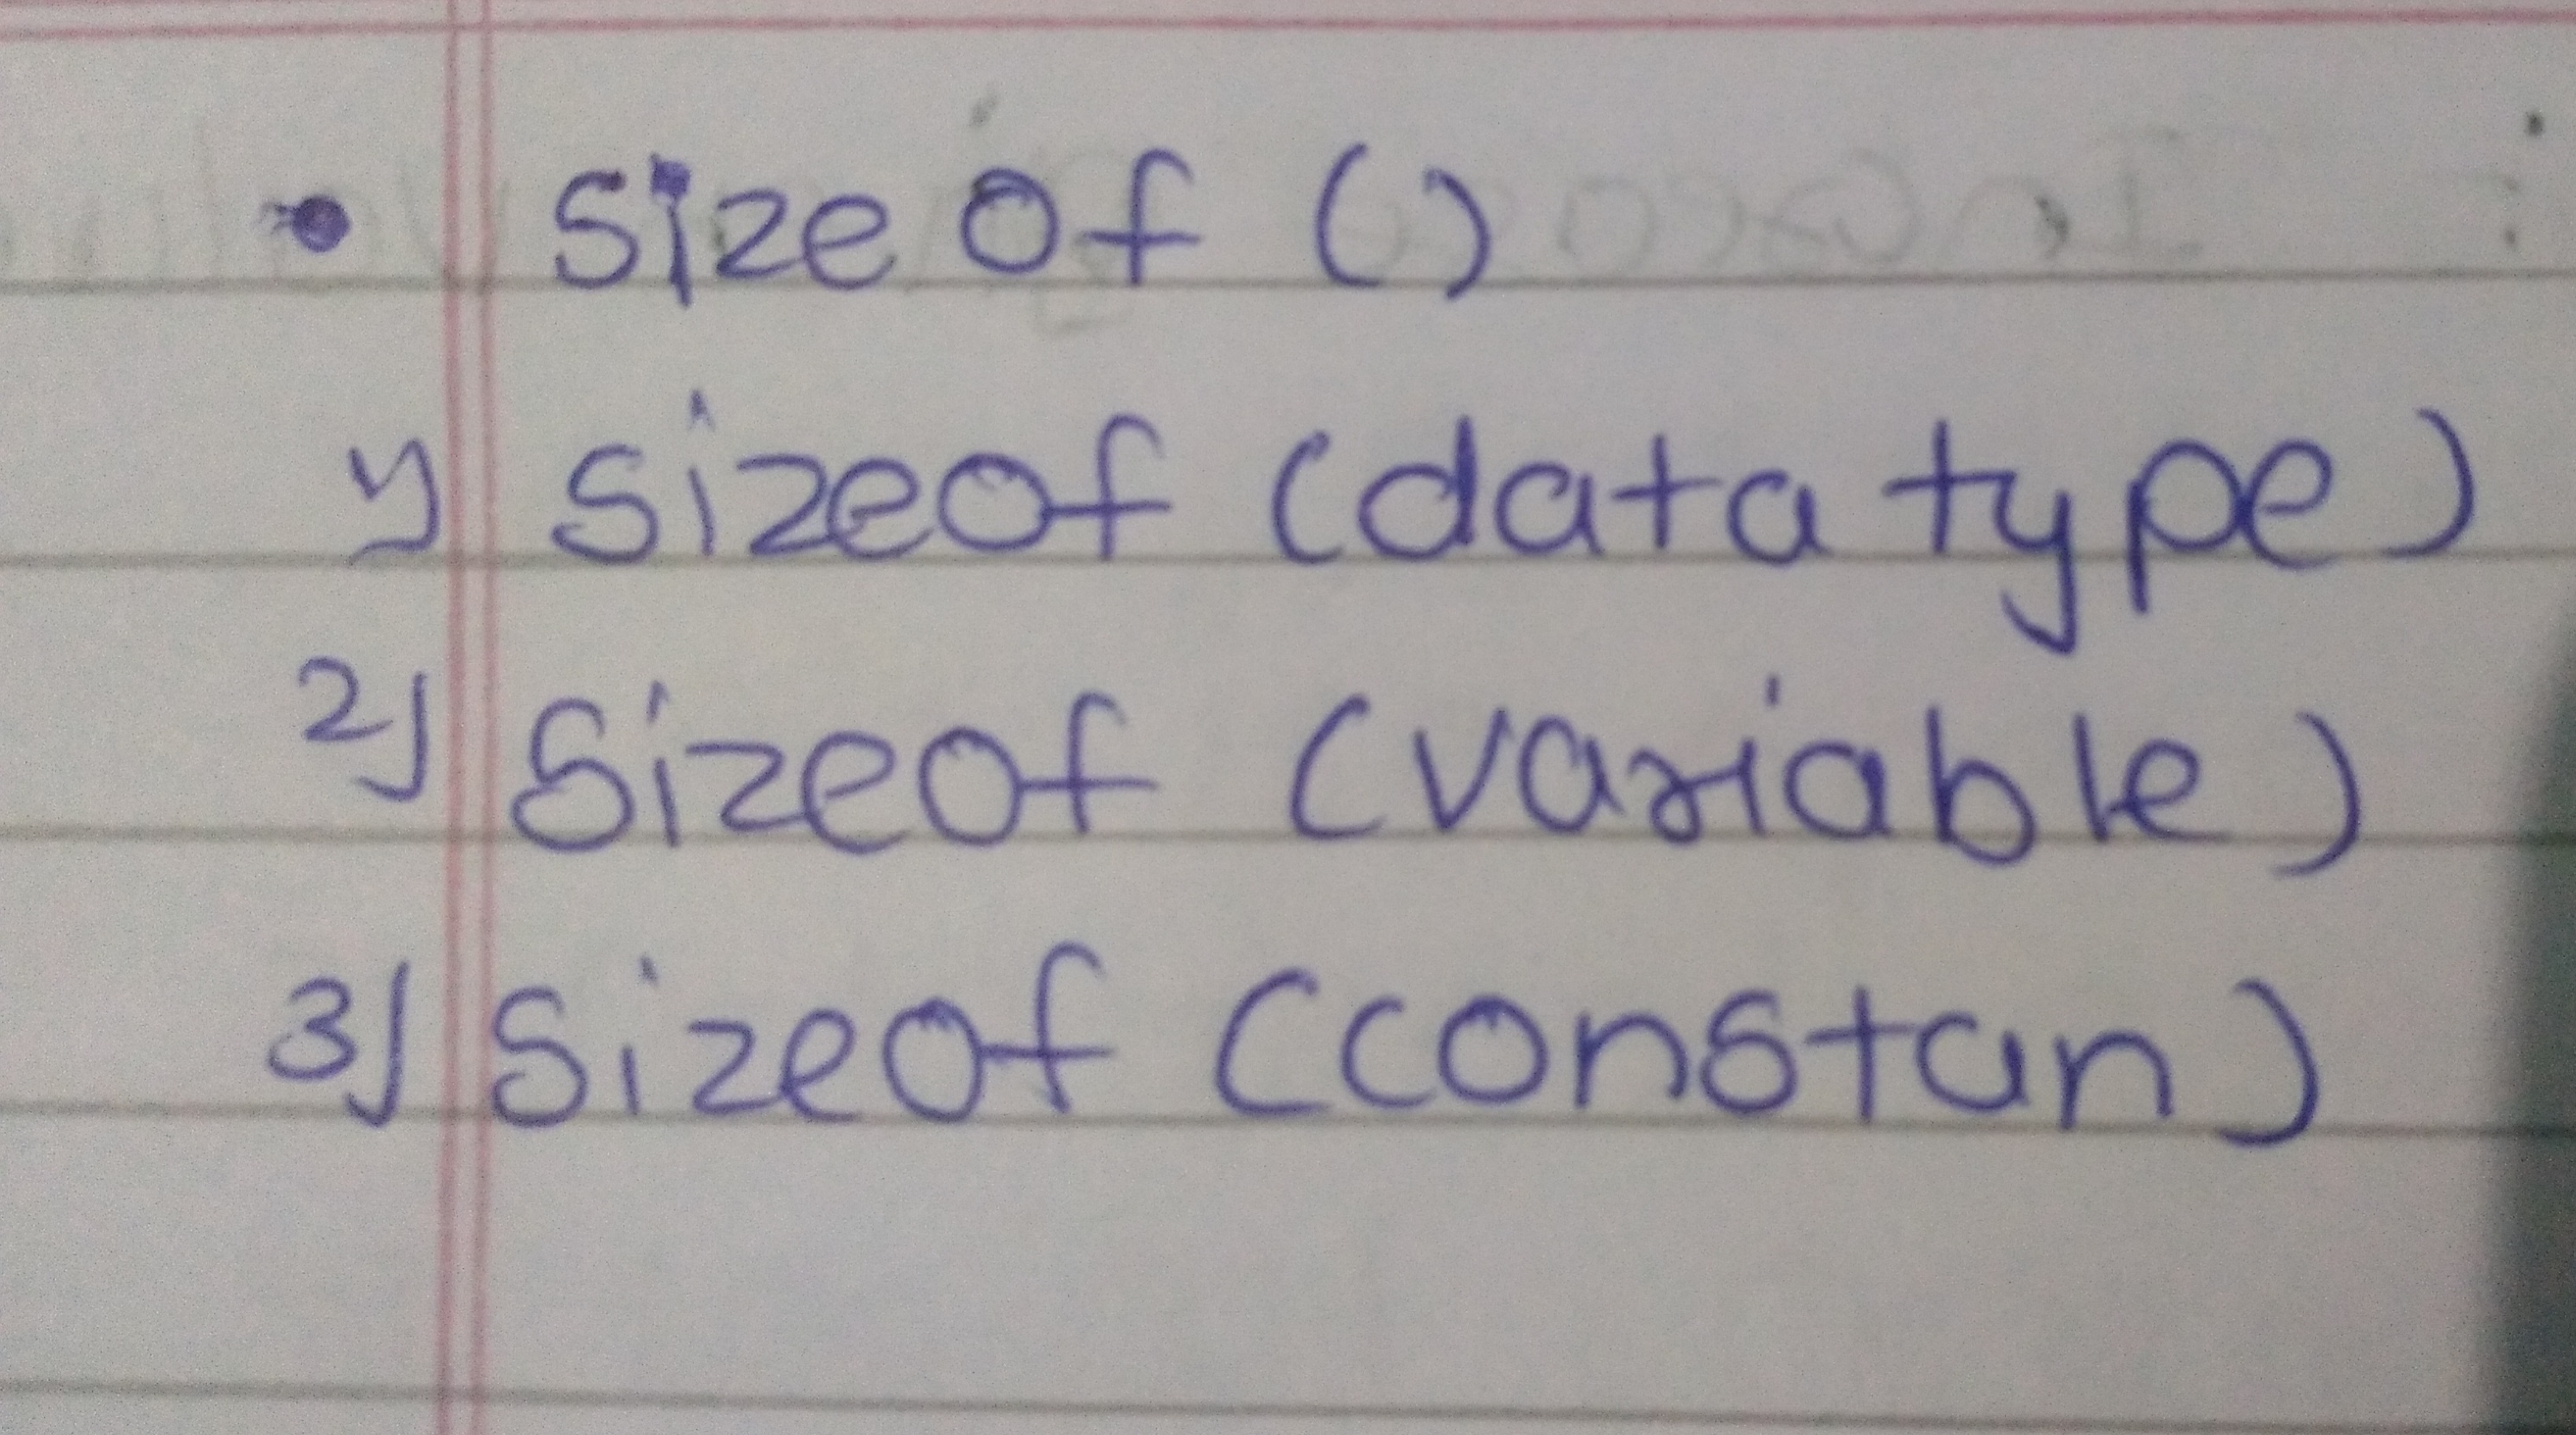 • Size Of ()
1) Sizeof (data type)
2) Sizeof (variable)
3) Sizeof (constan)